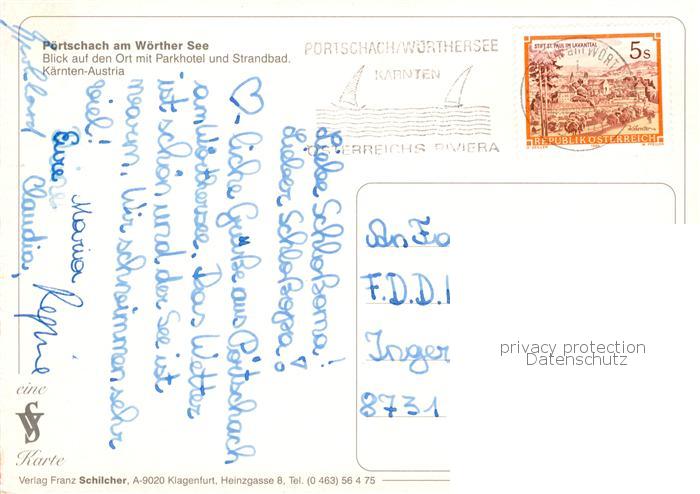 Pörtschach am Wörther See
Blick auf den Ort mit Parkhotel und Strandbad.
Kärnten-Austria
PÖRTSCHACH/WÖRTHERSEE
KÄRNTEN
ÖSTERREICHS RIVIERA
STIFT ST. PAUL IM LAVANTTAL
5s
REPUBLIK ÖSTERREICH
Liebe Schloßoma!
Lieber Schloßopa!
♡-liche Grüße aus Pörtschach
am Wörthersee. Das Wetter
ist schön und der See ist
warm. Wir schwimmen sehr
viel!
Eure
Maria Regine
Claudia,
An Fa
F.D.D.I
Inger
8731
privacy protection
Datenschutz
eine
Karte
Verlag Franz Schilcher, A-9020 Klagenfurt, Heinzgasse 8, Tel. (0 463) 56 4 75